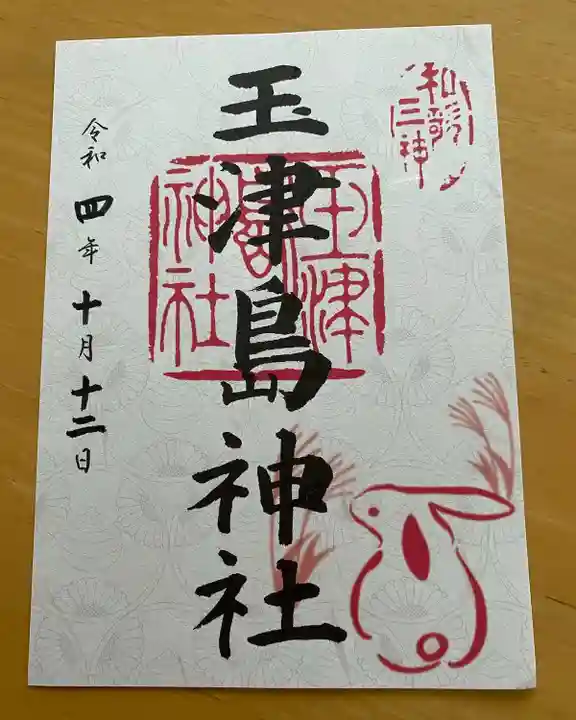 和歌
三神
玉津島神社
玉津
嶋
神社
令和四年十月十二日